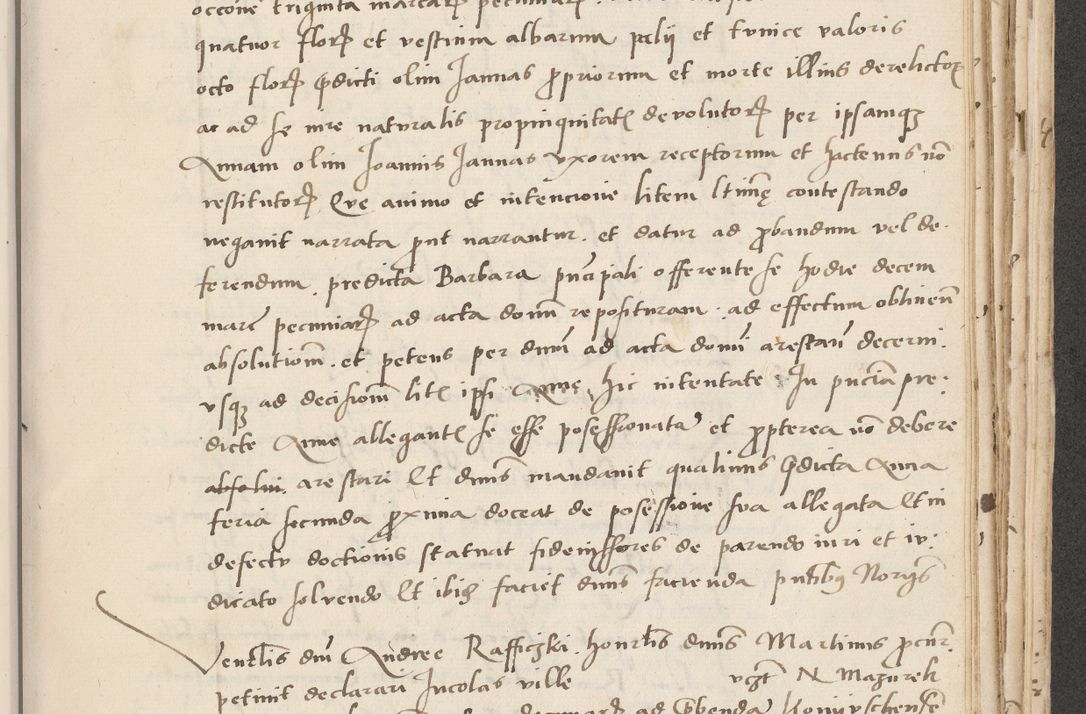 occone triginta marcarum pecuniarum
quatuor floren et vestium albarum pelii et tunice valoris
octo floren predicti olim Iannas propriorum et morte illius derelictorum
ac ad se iure naturalis propinquitatis devolutorum per ipsamque
Annam olim Ioannis Iannas uxorem receptorum et hactenus non
restitutorum Que animo et intencione litem ltimę contestando
negavit narrata prout narrantur. et datur ad probandum vel de-
ferendum. predicta Barbara principali offerente se hodie decem
marc pecuniarum ad acta domini reposituram. ad effectum obtinen
absolutionem. et petens per dnum ad acta domini arestari decerni.
usque ad decisionem litis ipsi Anne hic intentate. In pnciam pre-
dicte Anne allegantis se esse posessionatam et propterea non debere
absolui arestari Et dnus mandavit quatinus predicta Anna
feria secunda proxima doceat de posessione sua allegata Et in
defectu doctionis statuat fideiussores de parendo iuri et iu-
dicato solvendo Et ibidem faciet dnus facienda pntibus Noriis
Ventlis dni Andree Rafficzki. honrlis dnus Martinus pcur.
petivit declarari Incolas ville vczt N Mazurek
ad prebenda Koniuschensem